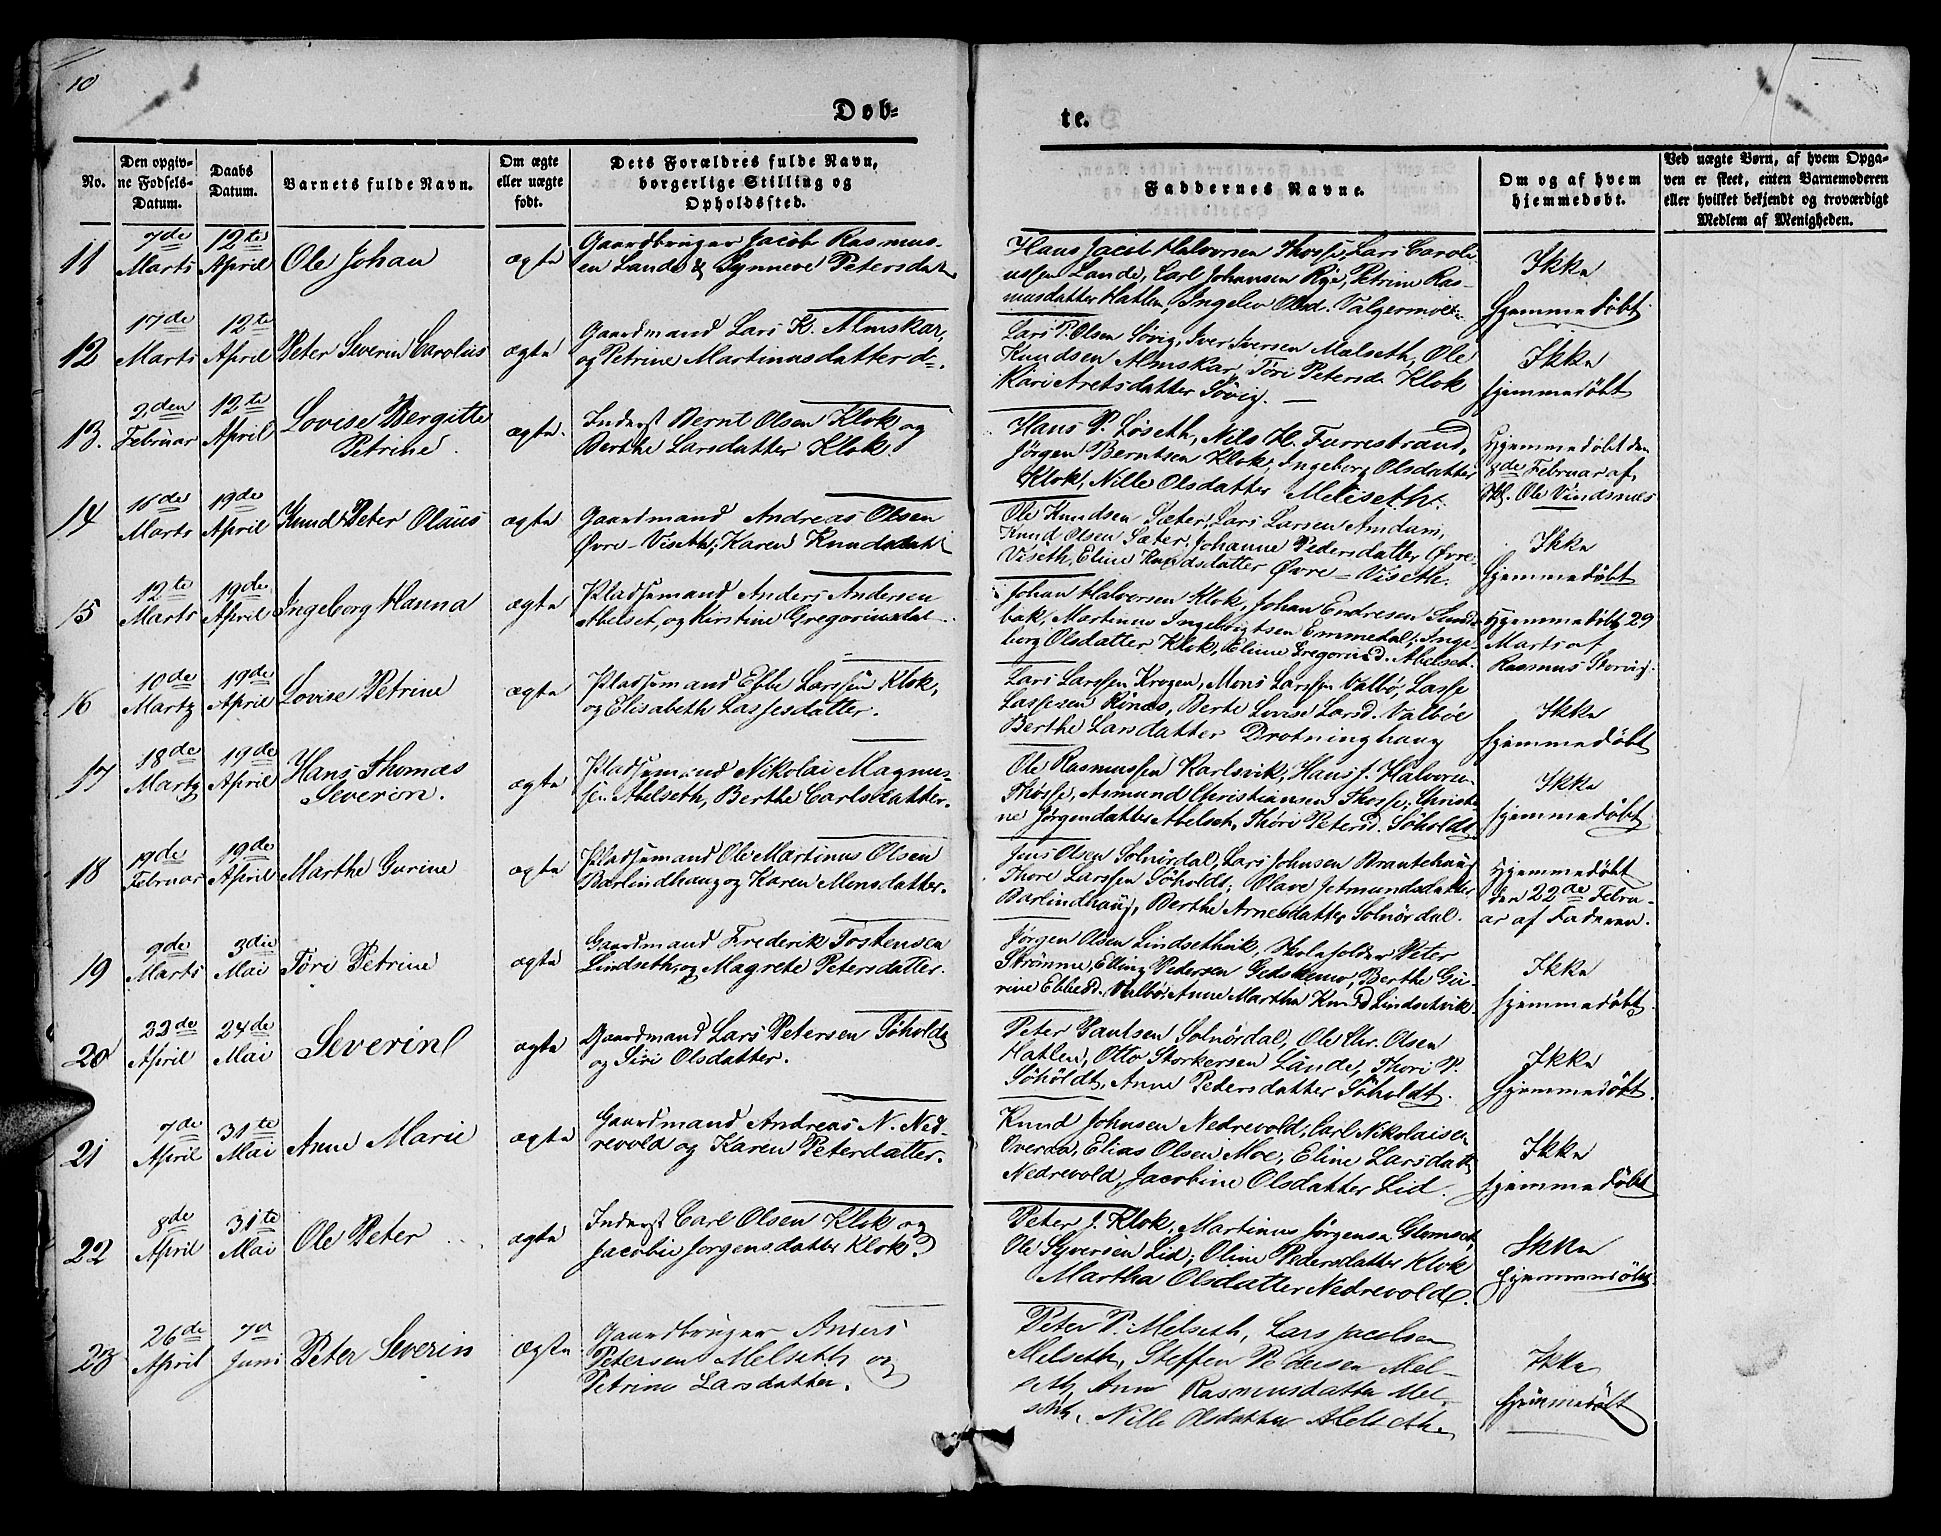 10
Døb-
te.
No.
Den opgiv-
ne Fødsels-
Datum.
Daabs
Datum.
Barnets fulde Navn.
Om ægte
eller uægte
født.
Dets Forældres fulde Navn,
borgerlige Stilling og
Opholdssted.
Faddernes Navne.
Om og af hvem
hjemmedøbt.
Ved uægte Børn, af hvem Opga-
ven er skeet, enten Barnemoderen
eller hvilket bekjendt og troværdigt
Medlem af Menigheden.
11
7de
Marts
12te
April
Ole Johan
ægte
Gaardbruger Jacob Rasmus-
en Lande & Synneve Petersdat
Hans Jacob Halvorsen Thosse, Lars Caroli
ussen Lande, Carl Johansen Rye, Petrine Ras-
musdatter Hatlen, Ingelev Olsd. Valgermoe
Ikke
Hjemmedøbt
12
17de
Marts
12te
April
Peter Severin Carolus
ægte
Gaardmand Lars K. Almskar,
og Petrine Martinusdatter do.
Lars P. Olsen Søvig, Iver Iversen Mælseth, Ole
Knudsen Almskar, Tøri Petersd. Klok
Kari Aretsdatter Søvig.
Ikke
hjemmedøbt
13.
2den
Februar
12te
April
Lovise Bergitte
Petrine
ægte.
Inderst Bernt Olsen Klok og
Berthe Larsdatter Klok.
Hans P. Løseth, Nils H. Furrestrand,
Jørgen Berntsen Klok, Ingeborg Olsdatter
Klok, Nille Olsdatter Melseth.
Hjemmedøbt den
8de Februar af
Ole Vindsnæs
14
18de
Marts
19de
April
Knud Peter Olaus
ægte
Gaardmand Andreas Olsen
Øvre-Viseth, Karen Knudsdat
Ole Knudsen Sæter, Lars Larsen Amdam,
Knud Olsen Sæter, Johanne Pedersdatter Øvre-
Viseth, Eline Knudsdatter Øvre-Viseth.
Ikke
hjemmedøbt
15
12te
Marts
19de
April
Ingeborg Hanna
ægte
Pladsemand Anders Andersen
Abelset, og Kirstine Gregoriusdat
Johan Halversen Klok, Johan Endresen Sund
bak, Martinus Ingebrigtsen Emmedal, Inge-
borg Olsdatter Klok, Eline Gregoriusd. Abelset.
Hjemmedøbt 29
Marts af
Rasmus Skorvig.
16
10de
Marts
19de
April
Lovise Petrine
ægte
Pladsemand Ebbe Larssen Klok,
og Elisabeth Lassesdatter.
Lars Larssen Krogen, Mons Larssen Valbø, Lasse
Lassesen Rønæs, Berte Lovise Larsd. Valbøe
Berthe Larsdatter Drotninghaug
Ikke
hjemmedøbt
17
18de
Marts
19de
April
Hans Thomas
Severin.
ægte
Pladsemand Nikolai Magnus-
sen Abelseth, Berthe Carlsdatter.
Ole Rasmussen Karlsvik, Hans J. Halvorsen
Thosse, Asmund Christiansen Thosse, Christi-
ne Jørgendatter Abelset, Thøri Petersd. Søholdt
Ikke
hjemmedøbt
18
19de
Februar
19de
April
Marthe Gurine
ægte
Pladsemand Ole Martinus Olsen
Barlindhaug og Karen Monsdatter.
Jens Olsen Solnørdal, Lars Johnsen Brautehaug
Thore Larssen Søholdt, Olave Jetmundsdatter
Barlindhaug, Berthe Arnesdatter Solnørdal.
Hjemmedøbt
den 22de Febru-
ar af Faderen.
19
9de
Marts
3die
Mai
Tøri Petrine
ægte
Gaardmand Frederik Tostensen
Lindseth, og Magrete Petersdatter.
Jørgen Olsen Lindsethvik, Skoleholder Peter
Strømme, Elling Pedersen Gedskemo, Berthe Gu-
rine Ebbesd. Valbø, Anne Martha Knudsd Lindsetvik
Ikke
hjemmedøbt
20
22de
April
24de
Mai
Severin
ægte
Gaardmand Lars Petersen Søholdt
og Siri Olsdatter.
Peter Gautsen Solnørdal, Ole Chr. Olsen
Hatlen, Otto Storkersen Lande, Thøri P.
Søholdt, Anne Petersdatter Søholdt.
Ikke
hjemmedøbt
21
7de
April
31te
Mai
Anne Marie
ægte
Gaardmand Andreas N. Ned-
revold og Karen Petersdatter.
Knud Johnsen Nedrevold, Carl Nikolaisen
Overaa, Elias Olsen Moe, Eline Larsdatt
Nedrevold, Jacobine Olsdatter Lid
Ikke
hjemmedøbt
22
8de
April
31te
Mai
Ole Peter
ægte
Inderst Carl Olsen Klok og
Jacobie Jørgensdatter Klok.
Peter J. Klok, Martinus Jørgensen Glomset,
Ole Syversen Lid, Oline Pedersdatter Klok
Martha Olsdatter Nedrevold.
Ikke
hjemmedøbt
23
26de
April
7de
Juni
Peter Severin
ægte
Gaardbruger Anders
Petersen Melseth og
Petrine Larsdatter.
Peter P. Melseth, Lars Jacobsen
Melseth, Steffen Pedersen Mel-
seth, Anne Rasmusdatter Mel-
seth, Nille Olsdatter Abelseth.
Ikke
hjemmedøbt